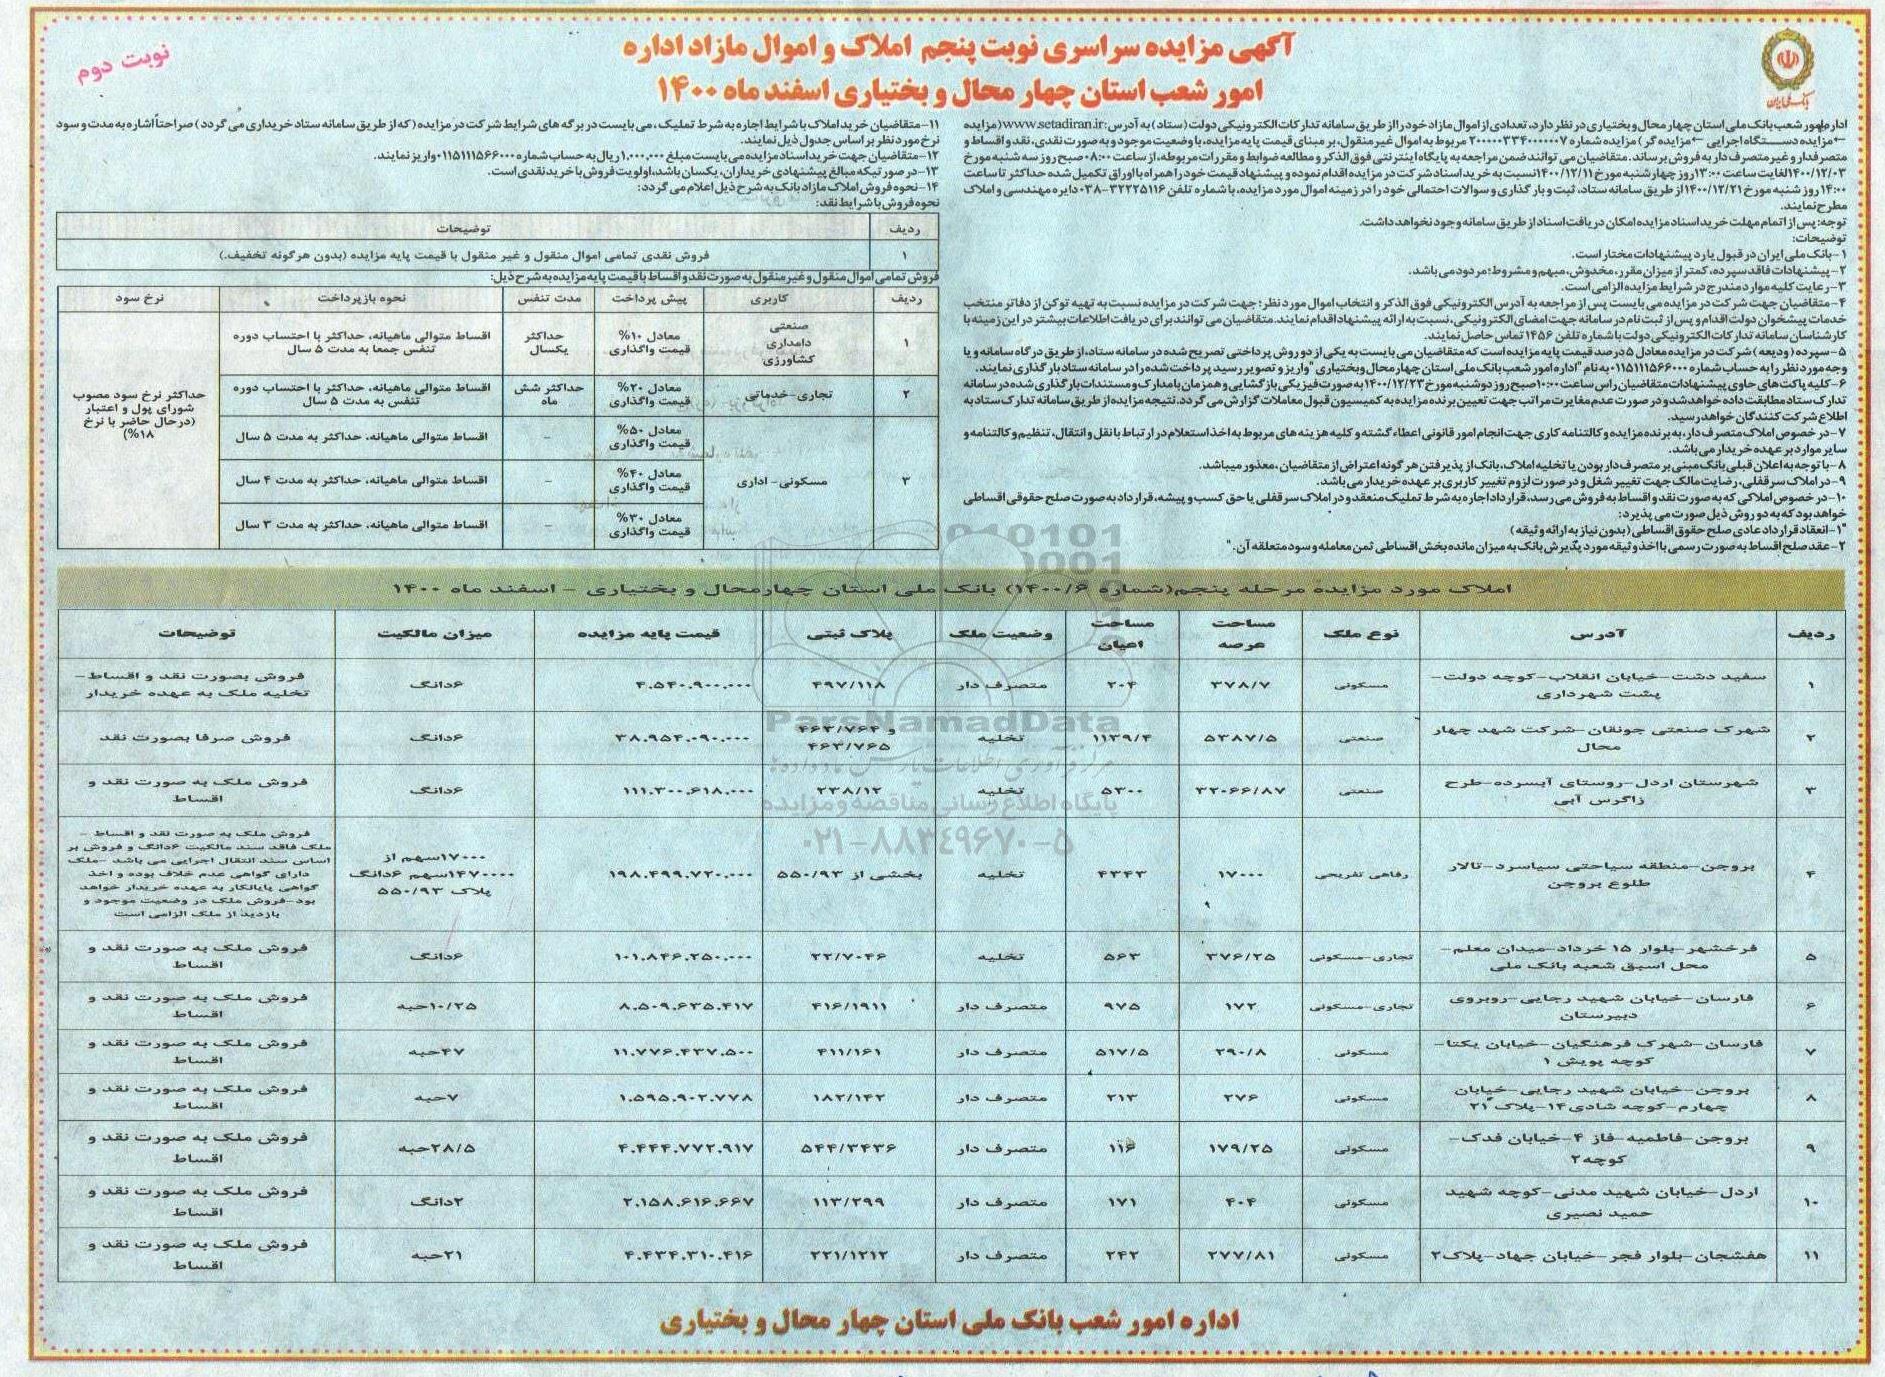 آگهی مزایده سراسری نوبت پنجم املاک و اموال مازاد اداره
امور شعب استان چهار محال و بختیاری اسفند ماه ۱۴۰۰
نوبت دوم
بانک ملی ایران
اداره امور شعب بانک ملی استان چهار محال و بختیاری در نظر دارد، تعدادی از اموال مازاد خود را از طریق سامانه تدارکات الکترونیکی دولت (ستاد) به آدرس: www.setadiran.ir(مزایده
←مزایده دستگاه اجرایی ←مزایده گر) مزایده شماره ۲۰۰۰۰۰۳۳۴۰۰۰۰۰۰۷ مربوط به اموال غیر منقول، بر مبنای قیمت پایه مزایده، با وضعیت موجود و به صورت نقدی، نقد و اقساط و
متصرفدار و غیر متصرف دار به فروش برساند. متقاضیان می توانند ضمن مراجعه به پایگاه اینترنتی فوق الذکر و مطالعه ضوابط و مقررات مربوطه، از ساعت ۰۸:۰۰ صبح روز سه شنبه مورخ
۱۴۰۰/۱۲/۰۳ لغایت ساعت ۱۳:۰۰ روز چهارشنبه مورخ ۱۴۰۰/۱۲/۱۱ نسبت به خرید اسناد شرکت در مزایده اقدام نموده و پیشنهاد قیمت خود را همراه با اوراق تکمیل شده حداکثر تا ساعت
۱۴:۰۰ روز شنبه مورخ ۱۴۰۰/۱۲/۲۱ از طریق سامانه ستاد، ثبت و بارگذاری و سوالات احتمالی خود را در زمینه اموال مورد مزایده، با شماره تلفن ۳۲۲۲۵۱۱۶-۰۳۸ دایره مهندسی و املاک
مطرح نمایند.
توجه: پس از اتمام مهلت خرید اسناد مزایده امکان دریافت اسناد از طریق سامانه وجود نخواهد داشت.
توضیحات:
۱-بانک ملی ایران در قبول یا رد پیشنهادات مختار است.
۲-پیشنهادات فاقد سپرده، کمتر از میزان مقرر، مخدوش، مبهم و مشروط؛ مردود می باشد.
۳-رعایت کلیه موارد مندرج در شرایط مزایده الزامی است.
۴-متقاضیان جهت شرکت در مزایده می بایست پس از مراجعه به آدرس الکترونیکی فوق الذکر و انتخاب اموال مورد نظر؛ جهت شرکت در مزایده نسبت به تهیه توکن از دفاتر منتخب
خدمات پیشخوان دولت اقدام و پس از ثبت نام در سامانه جهت امضای الکترونیکی، نسبت به ارائه پیشنهاد اقدام نمایند. متقاضیان می توانند برای دریافت اطلاعات بیشتر در این زمینه با
کارشناسان سامانه تدارکات الکترونیکی دولت با شماره تلفن ۱۴۵۶ تماس حاصل نمایند.
۵-سپرده (ودیعه) شرکت در مزایده معادل ۵ درصد قیمت پایه مزایده است که متقاضیان می بایست به یکی از دو روش پرداختی تصریح شده در سامانه ستاد، از طریق درگاه سامانه و یا
وجه مورد نظر را به حساب شماره ۰۱۱۵۱۱۱۵۶۶۰۰۰ به نام "اداره امور شعب بانک ملی استان چهار محال و بختیاری "واریز و تصویر رسید پرداخت شده را در سامانه ستاد بارگذاری نمایند.
۶-کلیه پاکت های حاوی پیشنهادات متقاضیان راس ساعت ۱۰:۰۰ صبح روز دوشنبه مورخ ۱۴۰۰/۱۲/۲۳ به صورت فیزیکی بازگشایی و همزمان با مدارک و مستندات بارگذاری شده در سامانه
تدارک ستاد مطابقت داده خواهد شد و در صورت عدم مغایرت مراتب جهت تعیین برنده مزایده به کمیسیون قبول معاملات گزارش می گردد. نتیجه مزایده از طریق سامانه تدارک ستاد به
اطلاع شرکت کنندگان خواهد رسید.
۷-در خصوص املاک متصرف دار، به برنده مزایده وکالتنامه کاری جهت انجام امور قانونی اعطاء گشته و کلیه هزینه های مربوط به اخذ استعلام در ارتباط با نقل و انتقال، تنظیم وکالتنامه و
سایر موارد بر عهده خریدار می باشد.
۸-با توجه به اعلان قبلی بانک مبنی بر متصرف دار بودن یا تخلیه املاک، بانک از پذیرفتن هر گونه اعتراض از متقاضیان، معذور میباشد.
۹-در املاک سرقفلی، رضایت مالک جهت تغییر شغل و در صورت لزوم تغییر کاربری بر عهده خریدار می باشد.
۱۰-در خصوص املاکی که به صورت نقد و اقساط به فروش می رسد، قرارداد اجاره به شرط تملیک منعقد و در املاک سرقفلی یا حق کسب و پیشه، قرارداد به صورت صلح حقوقی اقساطی
خواهد بود که به دو روش ذیل صورت می پذیرد:
"۱-انعقاد قرارداد عادی صلح حقوق اقساطی (بدون نیاز به ارائه وثیقه)
۲-عقد صلح اقساط به صورت رسمی با اخذ وثیقه مورد پذیرش بانک به میزان مانده بخش اقساطی ثمن معامله و سود متعلقه آن."
۱۱-متقاضیان خرید املاک با شرایط اجاره به شرط تملیک، می بایست در برگه های شرایط شرکت در مزایده (که از طریق سامانه ستاد خریداری می گردد) صراحتاً اشاره به مدت و سود
نرخ مورد نظر بر اساس جدول ذیل نمایند.
۱۲-متقاضیان جهت خرید اسناد مزایده می بایست مبلغ ۱,۰۰۰,۰۰۰ ریال به حساب شماره ۰۱۱۵۱۱۱۵۶۶۰۰۰ واریز نمایند.
۱۳-در صورتیکه مبالغ پیشنهادی خریداران، یکسان باشد، اولویت فروش با خرید نقدی است.
۱۴-نحوه فروش املاک مازاد بانک به شرح ذیل اعلام می گردد:
نحوه فروش با شرایط نقد:
ردیف توضیحات
۱ فروش نقدی تمامی اموال منقول و غیر منقول با قیمت پایه مزایده (بدون هرگونه تخفیف.)
فروش تمامی اموال منقول و غیر منقول به صورت نقد و اقساط با قیمت پایه مزایده به شرح ذیل:
ردیف کاربری پیش پرداخت مدت تنفس نحوه بازپرداخت نرخ سود
۱ صنعتی دامداری کشاورزی معادل ۱۰% قیمت واگذاری حداکثر یکسال اقساط متوالی ماهیانه، حداکثر با احتساب دوره تنفس جمعا به مدت ۵ سال
۲ تجاری-خدماتی معادل ۲۰% قیمت واگذاری حداکثر شش ماه اقساط متوالی ماهیانه، حداکثر با احتساب دوره تنفس به مدت ۵ سال
۳ مسکونی- اداری معادل ۵۰% قیمت واگذاری - اقساط متوالی ماهیانه، حداکثر به مدت ۵ سال
معادل ۴۰% قیمت واگذاری - اقساط متوالی ماهیانه، حداکثر به مدت ۴ سال
معادل ۳۰% قیمت واگذاری - اقساط متوالی ماهیانه، حداکثر به مدت ۳ سال
حداکثر نرخ سود مصوب
شورای پول و اعتبار
(درحال حاضر با نرخ
۱۸%)
املاک مورد مزایده مرحله پنجم(شماره ۱۴۰۰/۶) بانک ملی استان چهارمحال و بختیاری - اسفند ماه ۱۴۰۰
ردیف آدرس نوع ملک مساحت عرصه مساحت اعیان وضعیت ملک پلاک ثبتی قیمت پایه مزایده میزان مالکیت توضیحات
۱ سفید دشت-خیابان انقلاب-کوچه دولت-پشت شهرداری مسکونی ۳۷۸/۷ ۲۰۴ متصرف دار ۴۹۷/۱۱۸ ۴.۵۴۰.۹۰۰.۰۰۰ ۶دانگ فروش بصورت نقد و اقساط-تخلیه ملک به عهده خریدار
۲ شهرک صنعتی جونقان-شرکت شهد چهار محال صنعتی ۵۳۸۷/۵ ۱۱۳۹/۴ تخلیه ۴۶۳/۷۶۴ و ۴۶۳/۷۶۵ ۳۸.۹۵۴.۰۹۰.۰۰۰ ۶دانگ فروش صرفا بصورت نقد
۳ شهرستان اردل-روستای آبسرده-طرح زاگرس آبی صنعتی ۳۲۰۶۶/۸۷ ۵۳۰۰ تخلیه ۲۳۸/۱۲ ۱۱۱.۳۰۰.۶۱۸.۰۰۰ ۶دانگ فروش ملک به صورت نقد و اقساط
۴ بروجن-منطقه سیاحتی سیاسرد-تالار طلوع بروجن رفاهی تفریحی ۱۷۰۰۰ ۴۳۴۳ تخلیه بخشی از ۵۵۰/۹۳ ۱۹۸.۴۹۹.۷۲۰.۰۰۰ ۱۷۰۰۰سهم از ۱۴۷۰۰۰۰سهم ۶دانگ پلاک ۵۵۰/۹۳ فروش ملک به صورت نقد و اقساط - ملک فاقد سند مالکیت ۶دانگ و فروش بر اساس سند انتقال اجرایی می باشد -ملک دارای گواهی عدم خلاف بوده و اخذ گواهی پایانکار به عهده خریدار خواهد بود-فروش ملک در وضعیت موجود و بازدید از ملک الزامی است
۵ فرخشهر-بلوار ۱۵ خرداد-میدان معلم-محل اسبق شعبه بانک ملی تجاری-مسکونی ۳۷۶/۲۵ ۵۶۳ تخلیه ۲۲/۷۰۴۶ ۱۰۱.۸۴۶.۲۵۰.۰۰۰ ۶دانگ فروش ملک به صورت نقد و اقساط
۶ فارسان-خیابان شهید رجایی-روبروی دبیرستان تجاری-مسکونی ۱۷۲ ۹۷۵ متصرف دار ۴۱۶/۱۹۱۱ ۸.۵۰۹.۶۳۵.۴۱۷ ۱۰/۲۵حبه فروش ملک به صورت نقد و اقساط
۷ فارسان-شهرک فرهنگیان-خیابان یکتا-کوچه پویش ۱ مسکونی ۲۹۰/۸ ۵۱۷/۵ متصرف دار ۴۱۱/۱۶۱ ۱۱.۷۷۶.۴۳۷.۵۰۰ ۴۷حبه فروش ملک به صورت نقد و اقساط
۸ بروجن-خیابان شهید رجایی-خیابان چهارم-کوچه شادی۱۴-پلاک ۲۱ مسکونی ۲۷۶ ۲۱۳ متصرف دار ۱۸۲/۱۴۲ ۱.۵۹۵.۹۰۲.۷۷۸ ۷حبه فروش ملک به صورت نقد و اقساط
۹ بروجن-فاطمیه-فاز ۴-خیابان فدک-کوچه۲ مسکونی ۱۷۹/۲۵ ۱۱۶ متصرف دار ۵۴۴/۳۴۳۶ ۴.۴۴۴.۷۷۲.۹۱۷ ۲۸/۵حبه فروش ملک به صورت نقد و اقساط
۱۰ اردل-خیابان شهید مدنی-کوچه شهید حمید نصیری مسکونی ۴۰۴ ۱۷۱ متصرف دار ۱۱۳/۲۹۹ ۲.۱۵۸.۶۱۶.۶۶۷ ۲دانگ فروش ملک به صورت نقد و اقساط
۱۱ هفشجان-بلوار فجر-خیابان جهاد-پلاک۲ مسکونی ۲۷۷/۸۱ ۲۴۲ متصرف دار ۲۲۱/۱۲۱۲ ۴.۴۳۴.۳۱۰.۴۱۶ ۲۱حبه فروش ملک به صورت نقد و اقساط
ParsNamadData
مرکز فرآوری اطلاعات پارس نماد داده ها
پایگاه اطلاع رسانی مناقصه و مزایده
۰۲۱-۸۸۳۴۹۶۷۰-۵
اداره امور شعب بانک ملی استان چهار محال و بختیاری